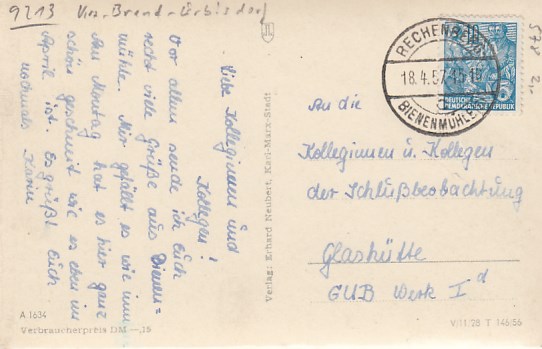 9213 Krs. Brand-Erbisdorf
Liebe Kolleginnen und
Kollegen!
Vor allem sende ich Euch
recht viele Grüße aus Bienen=
mühle. Mir gefällt es wie immer
Am Montag hat es hier ganz
schön geschneit wie es eben im
April ist. Es grüßt Euch
nochmals Karin
A 1634
Verbraucherpreis DM —,15
Verlag: Erhard Neubert, Karl-Marx-Stadt
RECHENBERG
18.4.57-15
BIENENMÜHLE
a
DEUTSCHE
DEMOKRATISCHE REPUBLIK
578
2,-
An die
Kolleginnen u. Kollegen
der Schlußbeobachtung
Glashütte
GUB Werk I d
V/11/28 T 146/56